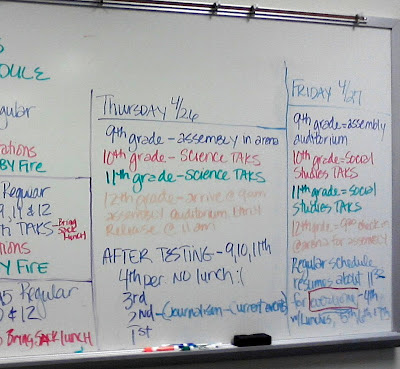 S
DULE
egular
rations
BY Fire
Regular
& 12
TAKS-Bring
Sack
Lunch!
tions
BY Fire
Regular
& 12
Bring Sack lunch
THURSDAY 4/26
9th grade - assembly in arena
10th grade - Science TAKS
11th grade - Science TAKS
12th grade - arrive @ 9am
assembly auditorium Early
Release @ 11am
AFTER TESTING - 9,10,11th
4th per. NO lunch :(
3rd
2nd - (Journalism - Current events)
1st
FRIDAY 4/27
9th grade = assembly
auditorium
10th grade = Social
Studies TAKS
11th grade = Social
Studies TAKS
12th grade - 9am check in
@ arena for assembly
Regular schedule
resumes about
for - 4th
w/lunches, 5th, 6th, 7th